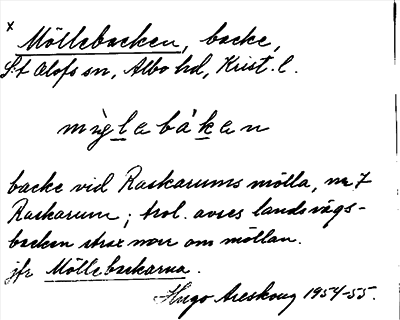 x Möllebacken, backe,
S:t Olofs sn, Albo hd, Krist. l.
backe vid Raskarums mölla, nr 7
Raskarum; trol. avses landsvägs-
backen strax norr om möllan.
jfr Möllebackarna.
Hugo Areskoug 1954-55.